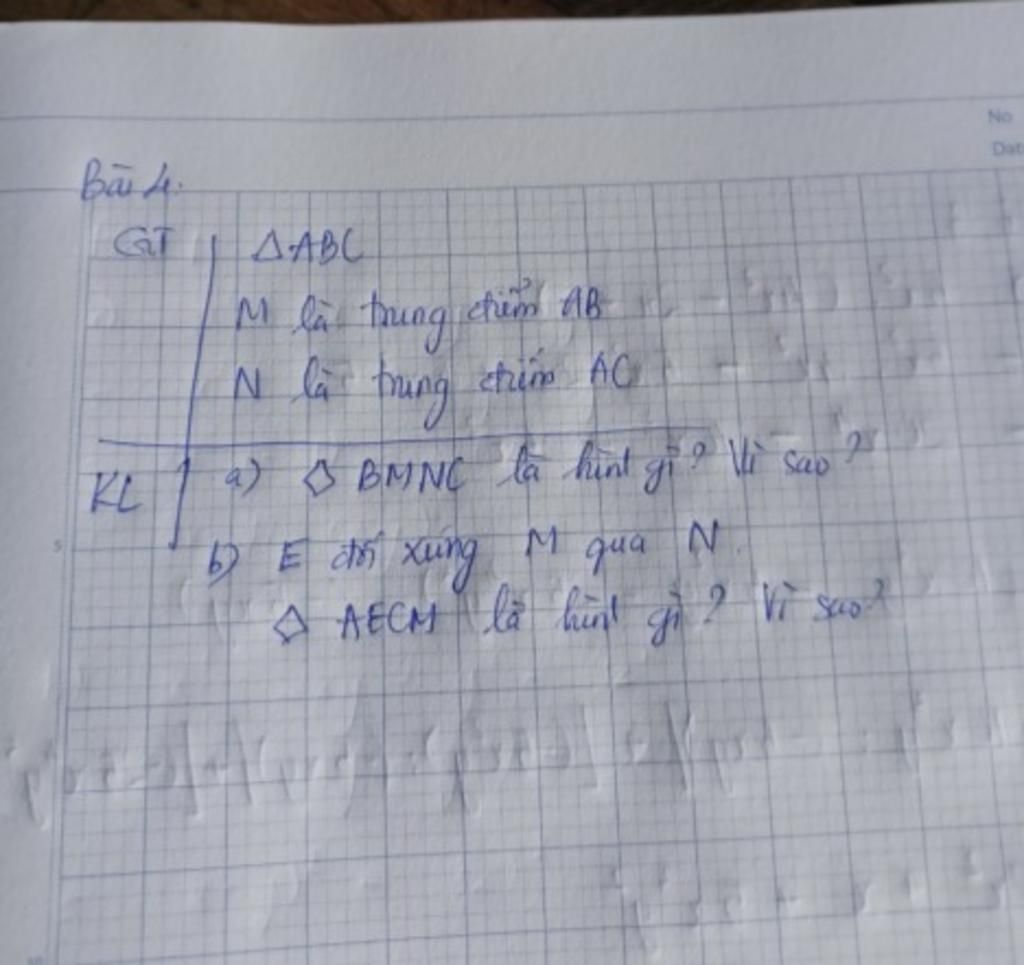 No
Dat
Bài 4.
GT ΔABC
M là trung điểm AB
N là trung điểm AC
KL a) ◇ BMNC là hình gì? Vì sao?
b) E đối xứng M qua N.
◇ AECM là hình gì? Vì sao?